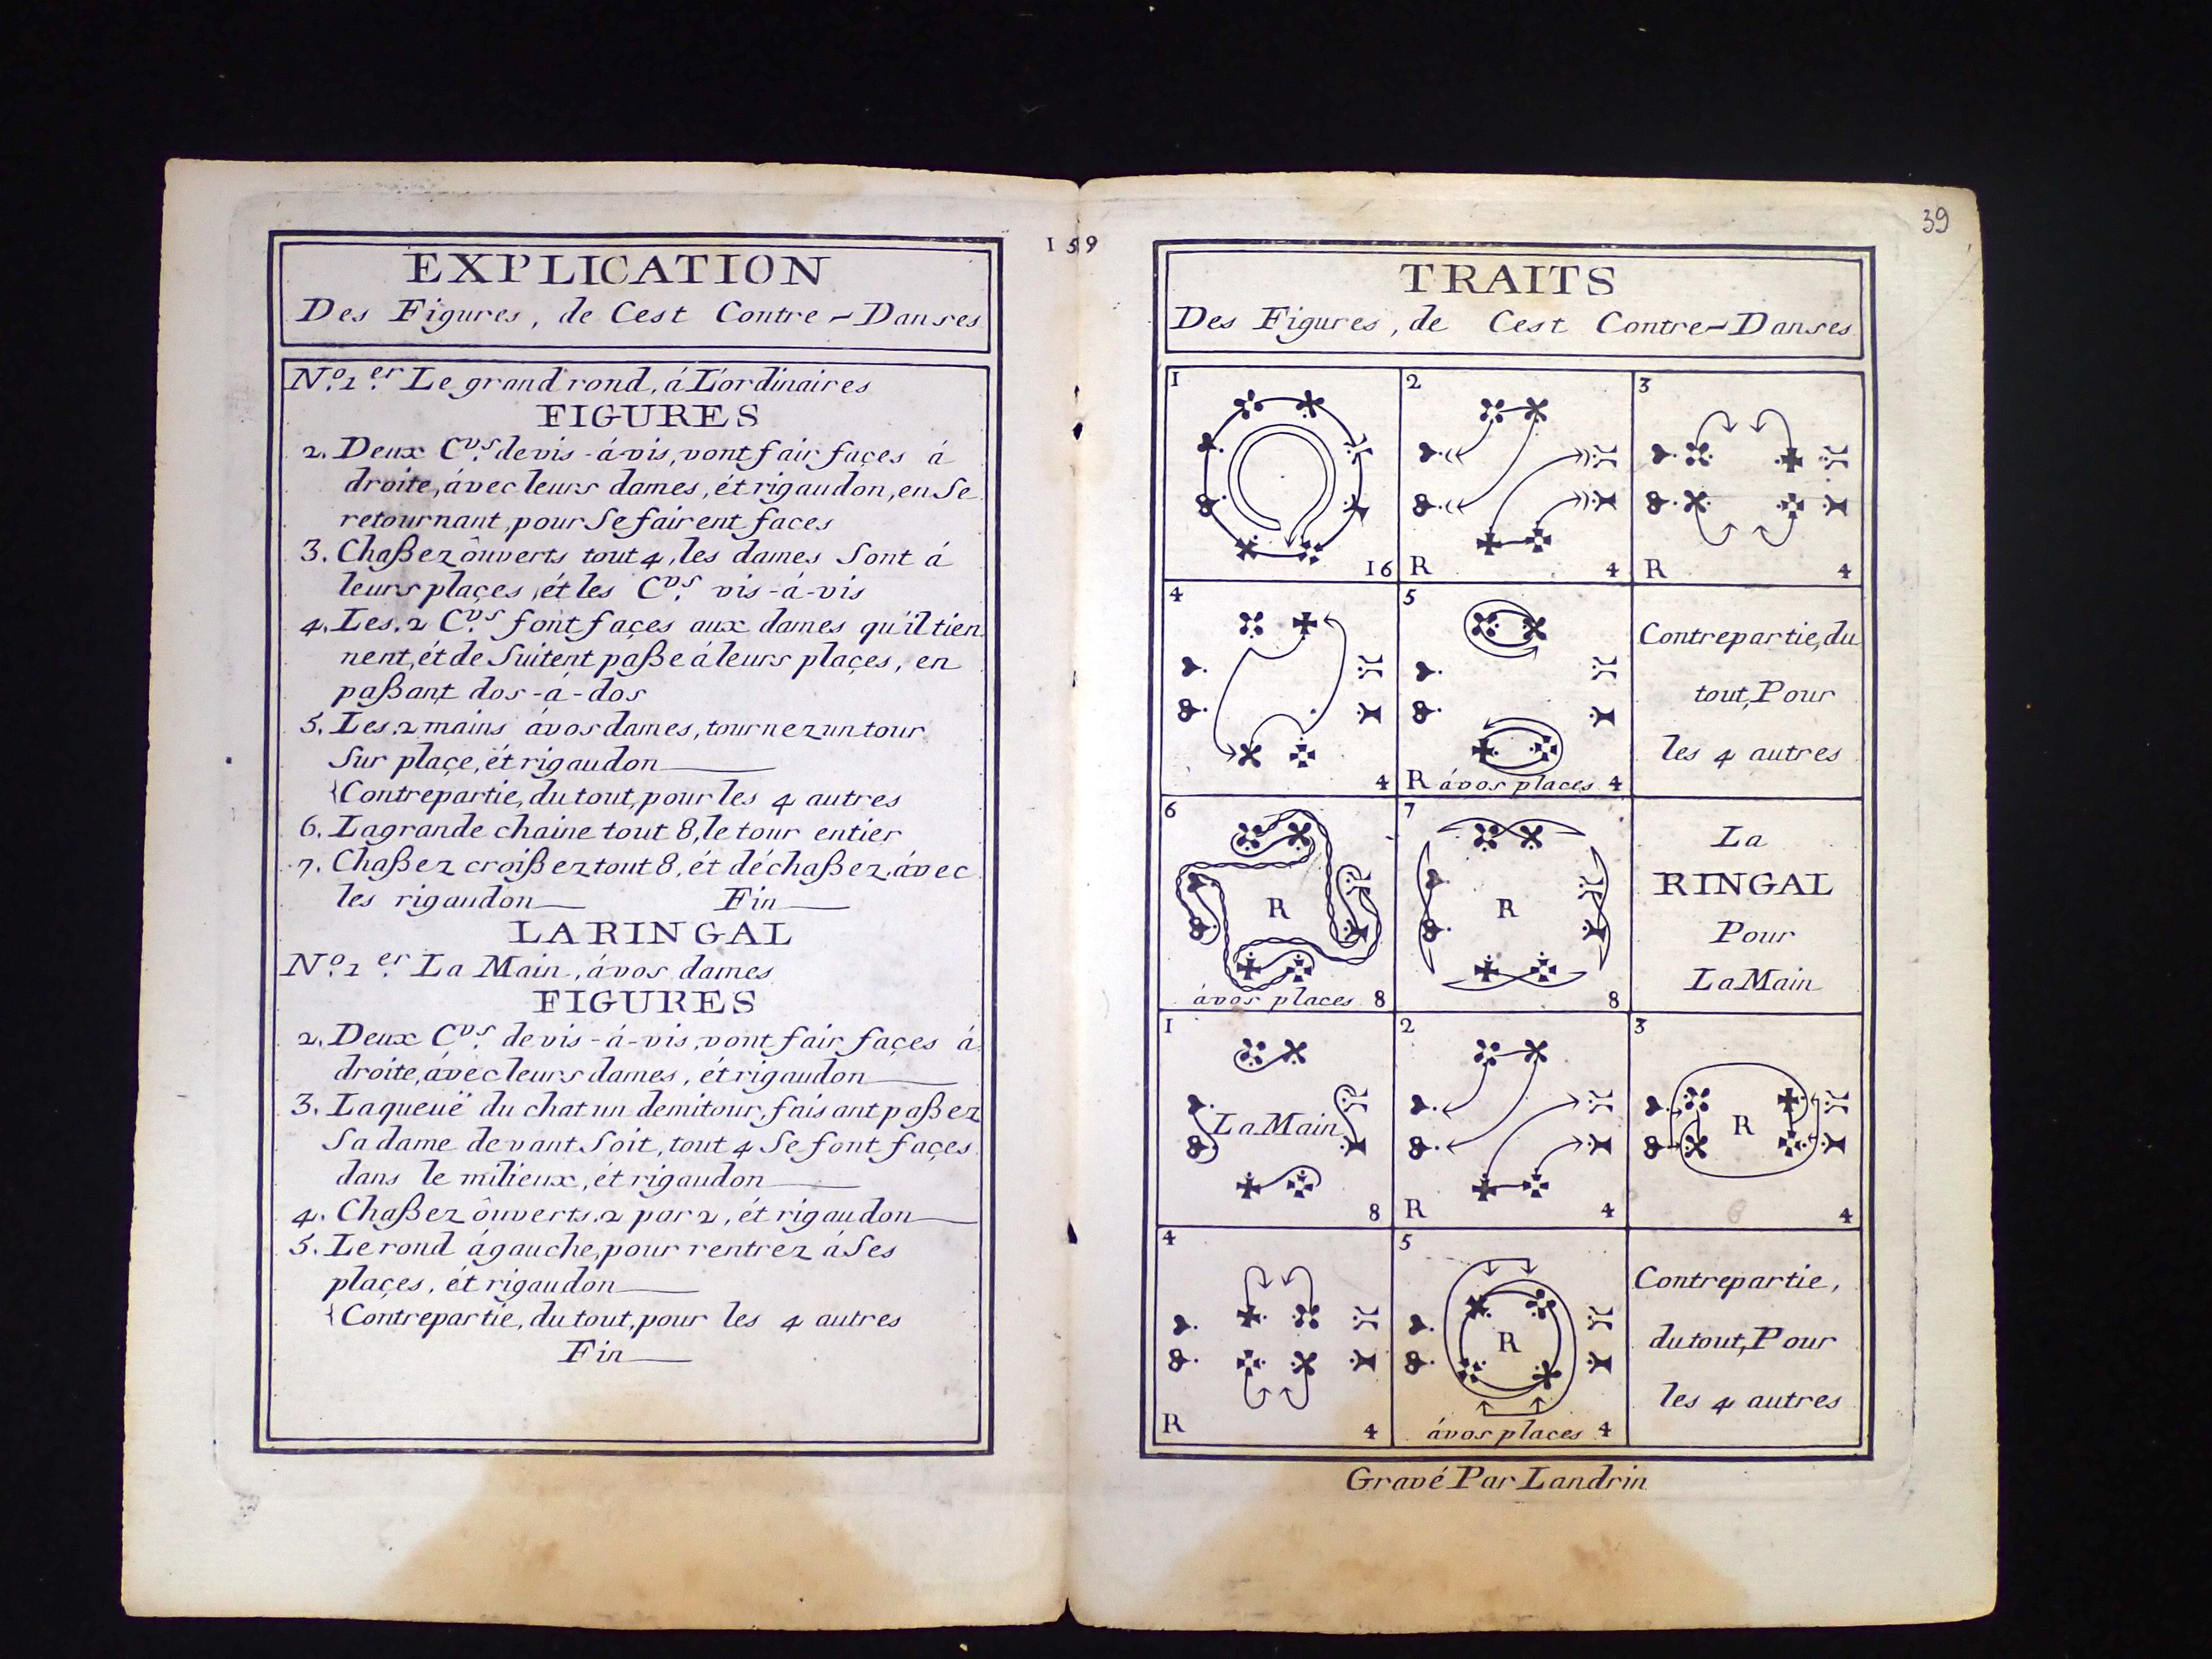 159
EXPLICATION
Des Figures, de Cest Contre-Danses
N.o 1.er Le grand rond, á L'ordinaires
FIGURES
2. Deux C.vs de vis-á-vis, vont fair façes á
droite, ávec leurs dames, ét rigaudon, en Se
retournant, pour Se fairent faces
3. Chaßez ôuverts tout 4, les dames Sont á
leurs plaçes, ét les C.vs vis-á-vis
4. Les. 2 C.vs font façes aux dames qu'il tien
nent, ét de Suitent paße á leurs plaçes, en
paßant dos-á-dos
5. Les. 2 mains ávos dames, tournez un tour
Sur plaçe, ét rigaudon
Contrepartie, du tout, pour les 4 autres
6. La grande chaine tout 8, le tour entier
7. Chaßez croißez tout 8, ét déchaßez, ávec
les rigaudon Fin
LA RINGAL
N.o 1.er La Main, ávos dames
FIGURES
2. Deux C.vs de vis-á-vis, vont fair façes á
droite, ávec leurs dames, ét rigaudon
3. La queuë du chat un demi tour, faisant paßez
Sa dame devant Soit, tout 4 Se font façes
dans le milieux, ét rigaudon
4. Chaßez ôuverts. 2 par 2, ét rigaudon
5. Le rond ágauche, pour rentrez á Ses
plaçes, ét rigaudon
Contrepartie, du tout, pour les 4 autres
Fin
39
TRAITS
Des Figures, de Cest Contre-Danses
1
16
2
R 4
3
R 4
4
4
5
R ávos places 4
Contrepartie, du
tout, Pour
les 4 autres
6
R
ávos places 8
7
R
8
La
RINGAL
Pour
La Main
1
La Main
8
2
R 4
3
R
4
4
R 4
5
R
ávos places 4
Contrepartie,
du tout, Pour
les 4 autres
Gravé Par Landrin